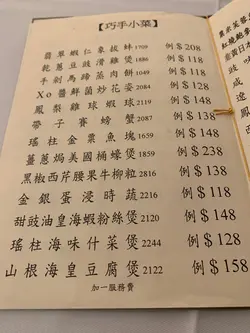 【巧手小菜】
翡翠蝦仁象拔蚌1709 例$208
乾蔥豆豉滑雞煲1886 例$118
手剁馬蹄蒸肉餅1049 例$118
Xo醬鮮菌炒花姿2084 例$118
鳳梨雞球蝦球2119 例$148
帶子賽螃蟹2087 例$138
瑤柱金粟魚塊1659 例$238
薑蔥焗美國桶蠔煲1859 例$138
黑椒西芹腰果牛柳粒2816 例$128
金銀蛋浸時蔬2216 例$138
甜豉油皇海蝦粉絲煲2120 例$148
瑤柱海味什菜煲2244 例$128
山根海皇豆腐煲2122 例$158
加一服務費